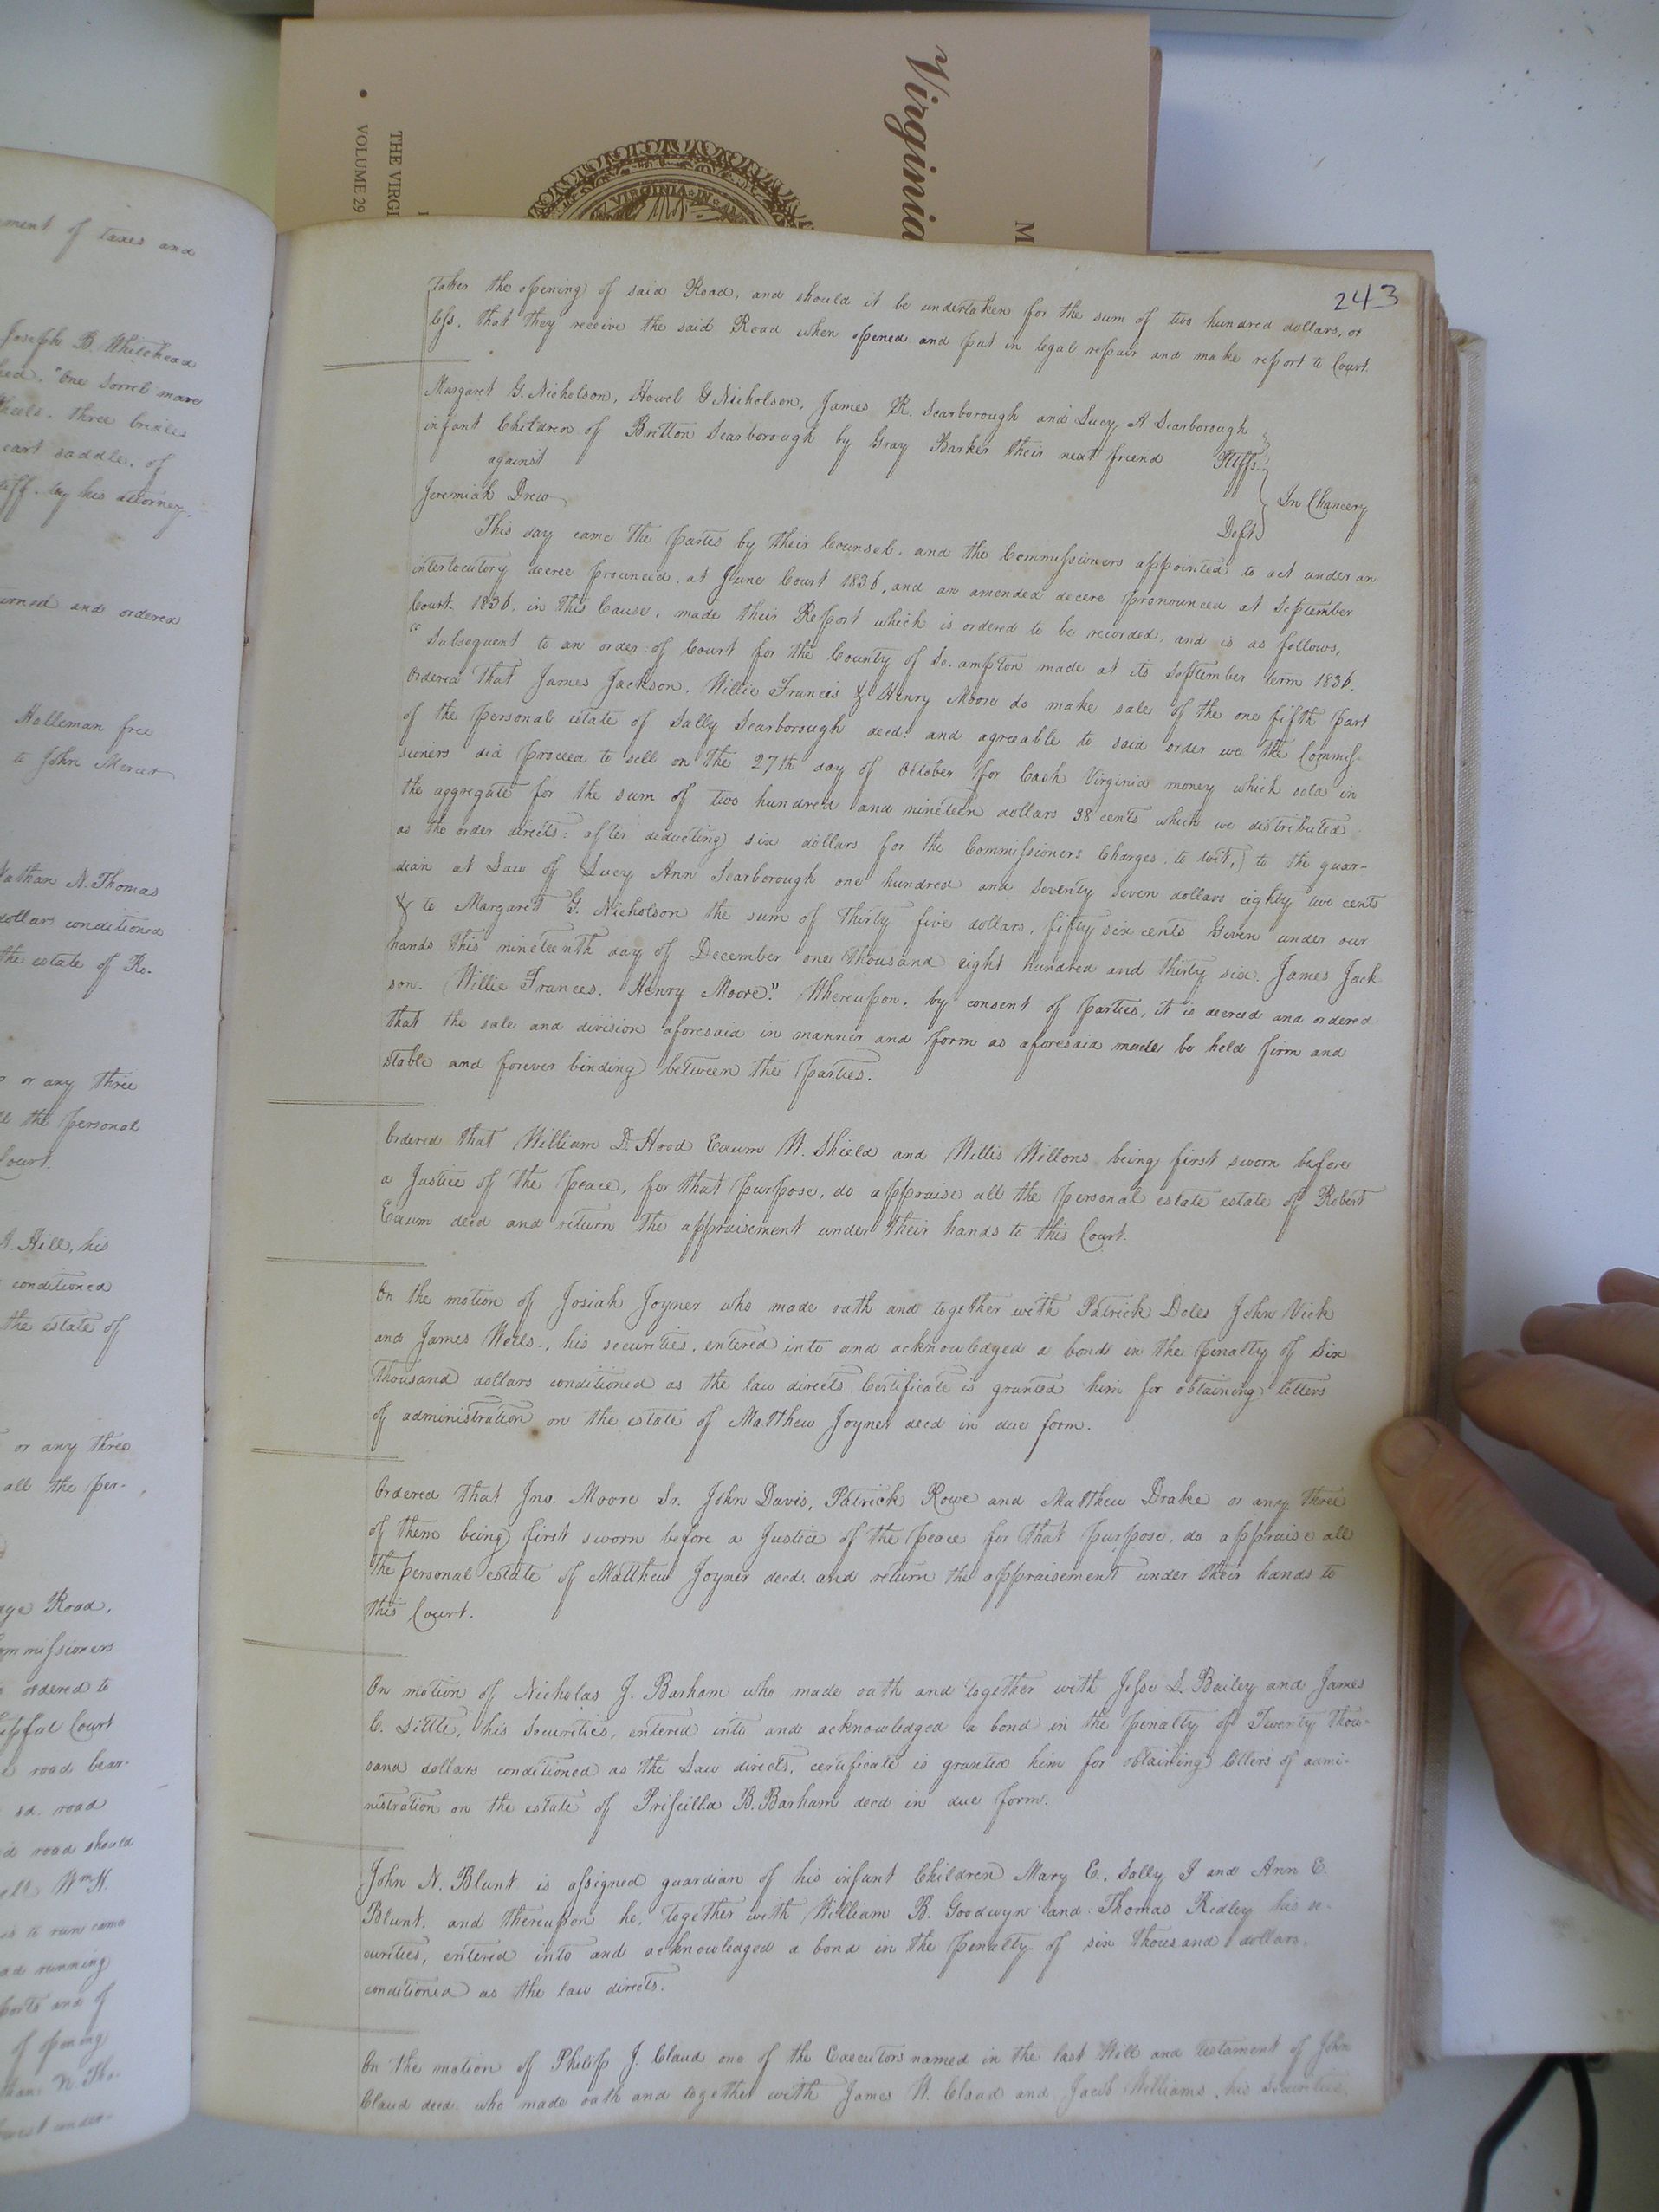 Virginia
M
THE VIRGI
VOLUME 29
VIRGINIA
ment of taxes and
Joseph B. Whitehead
One Sorrel mare
three bridles
cart saddle, of
tiff. by his attorney.
and ordered
Holleman free
to John Mercer
Nathan N. Thomas
dollars conditioned
the estate of Re-
or any three
the personal
Court.
Hill, his
conditioned
the estate of
or any three
all the per-
Road,
ommissioners
ordered to
Court
road bear-
sd. road
road should
Wm H.
to run
ad running
and of
of opening
N. Tho-
under-
243
takes the opening of said Road, and should it be undertaken for the sum of two hundred dollars, or
less, that they receive the said Road when opened and put in legal repair and make report to Court.
Margaret G. Nicholson, Howel G Nicholson, James R. Scarborough and Lucy A Scarborough
infant Children of Britton Scarborough by Gray Barker their next friend Pltffs.
against
In Chancery
Jeremiah Drew Deft.
This day came the parties by their Counsel, and the Commissioners appointed to act under an
interlocutory decree prounced, at June Court 1836, and an amended decere pronounced at September
Court 1836, in this Cause, made their Report which is ordered to be recorded, and is as follows,
"Subsequent to an order of Court for the County of So. ampton made at its September term 1836,
Ordered that James Jackson, Willie Francis & Henry Moore do make sale of the one fifth part
of the personal estate of Sally Scarborough decd: and agreeable to said order we the Commis-
sioners did proceed to sell on the 27th day of October for Cash Virginia money which sold in
the aggregate for the sum of two hundred and nineteen dollars 38 cents which we distributed
as the order directs: after deducting six dollars for the Commissioners Charges, to wit, to the guar-
dian at Law of Lucy Ann Scarborough one hundred and Seventy seven dollars eighty two cents
& to Margaret G. Nicholson the sum of thirty five dollars, fifty six cents Given under our
hands this nineteenth day of December one thousand eight hundred and thirty six. James Jack-
son. Willie Frances. Henry Moore." Whereupon, by consent of parties, it is decreed and ordered
that the sale and division aforesaid in manner and form as aforesaid made be held firm and
stable and forever binding between the parties.
Ordered that William D. Hood Exum W. Shield and Willis Willons being first sworn before
a Justice of the peace, for that purpose, do appraise all the personal estate estate of Robert
Exum decd and return the appraisement under their hands to this Court.
On the motion of Josiah Joyner who made oath and together with Patrick Doles John Vick
and James Wells, his securities, entered into and acknowledged a bond in the penalty of Six
thousand dollars conditioned as the law directs Certificate is granted him for obtaining letters
of administration on the estate of Matthew Joyner decd in due form.
Ordered that Jno. Moore Sr. John Davis, Patrick Rowe and Matthew Drake or any three
of them being first sworn before a Justice of the peace for that purpose, do appraise all
the personal estate of Matthew Joyner decd. and return the appraisement under their hands to
this Court.
On motion of Nicholas J. Barham who made oath and together with Jesse L. Bailey and James
C. Little, his Securities, entered into and acknowledged a bond in the penalty of Twenty thou-
sand dollars conditioned as the Law directs, certificate is granted him for obtaining letters of admi-
nistration on the estate of Priscilla B. Barham decd in due form.
John N. Blunt is assigned guardian of his infant Children Mary E., Sally J and Ann E.
Blunt, and thereupon he, together with William B. Goodwyn and Thomas Ridley his se-
curities, entered into and acknowledged a bond in the penalty of six thousand dollars,
conditioned as the law directs.
On the motion of Philip J. Claud one of the Executors named in the last Will and testament of John
Claud decd. who made oath and together with James W. Claud and Jacob Williams, his Securities,